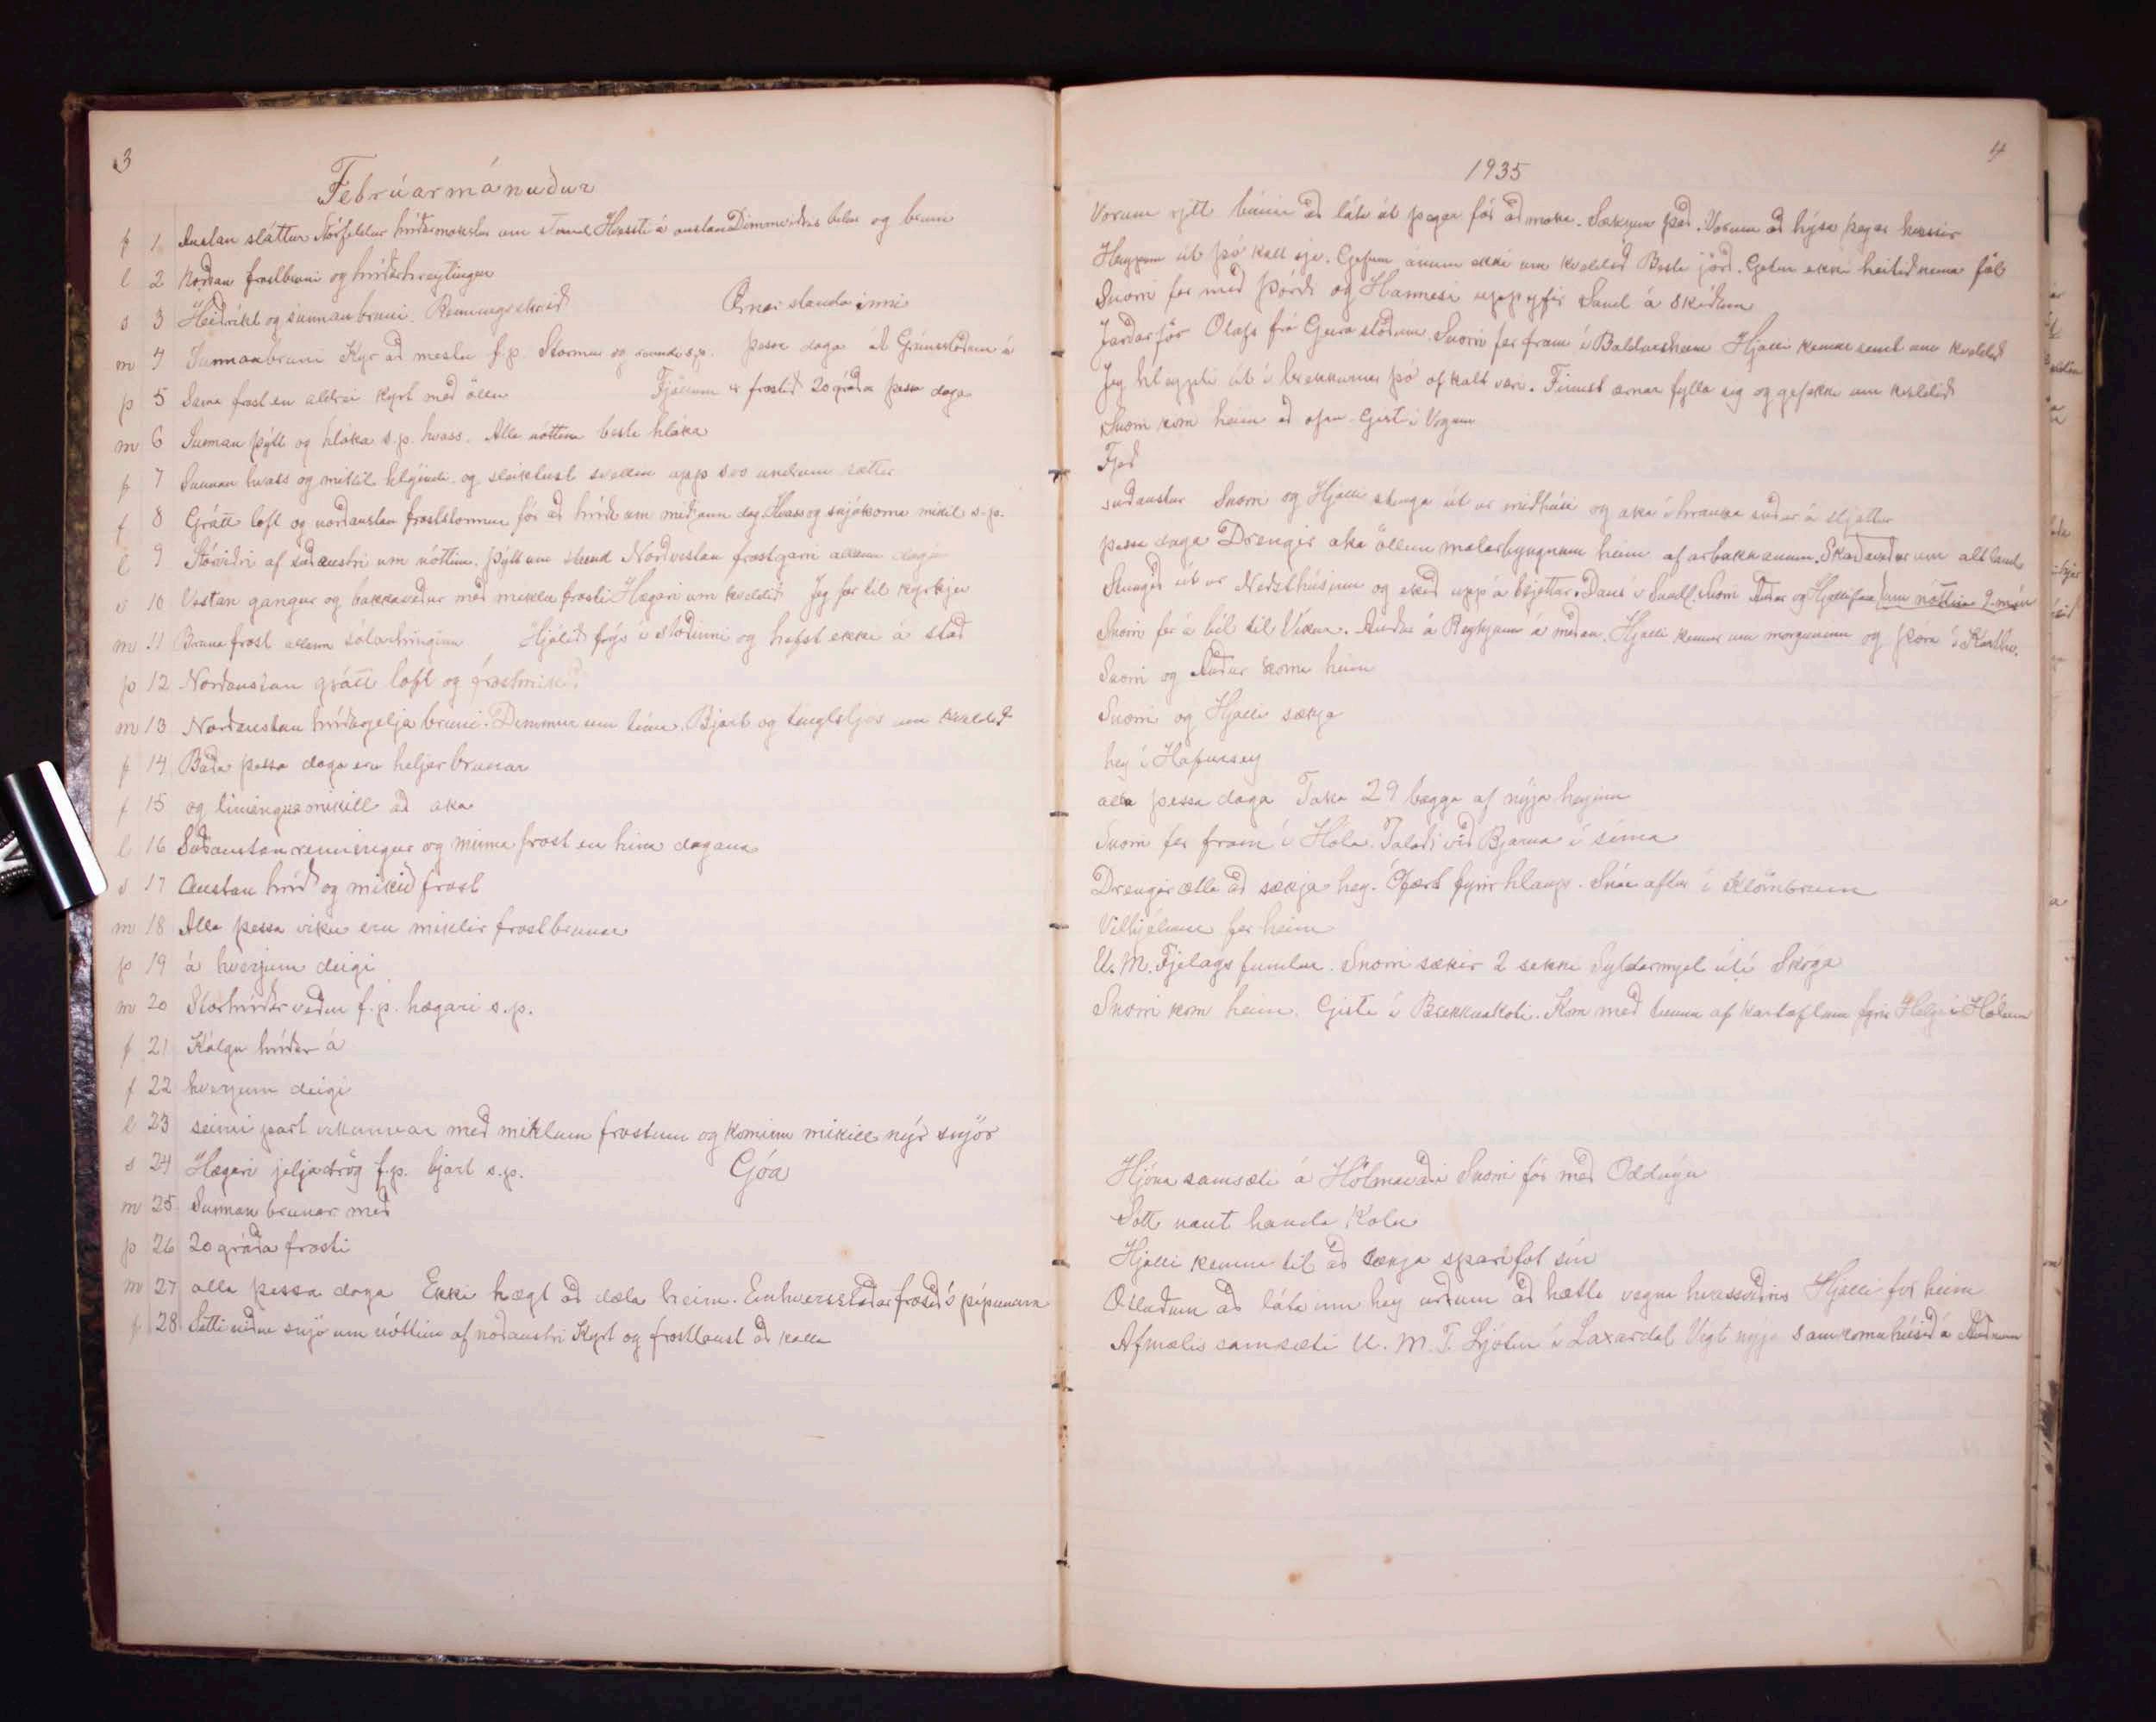 3
Febrúarmánuður
f 1 Austan sláttur Stórfeldur hríðarmokstur um stund Hvessti á austan Dimmviðris bylur og bruni
l 2 Norðan frostbruni og hríðarhreytingur
s 3 Heiðríkt og sunnan bruni. Renningsskrið Ærnar standa inni
m 4 Sunnanbruni Kyr að mestu f.p. Stormur og s.p. þessa daga át Grímsstöðum á
þ 5 Sama frost en aldrei kyrt með öllu Fjöllum er frostið 20 gráða þessa daga
m 6 Sunnan þýtt og hláka s.p. hvass. Alla nóttina besta hláka
f 7 Sunnan hvass og mikil hlýindi og sleiktust svellin upp svo undrum sætti
f 8 Grátt loft og norðaustan froststormur fór að hríða um miðjann dag. Hvass og snjókoma mikil s.p.
l 9 Stórviðri af suðaustri um nóttina. Þýtt um stund Norðvestan frostgarri allann daginn
s 10 Vestan gangur og bakkaveður með miklu frosti Hægari um kveldið Jeg fer til kyrkju
m 11 Bruna frost allann sólarhringinn Hjólið frýs í stöðinni og hefst ekki á stað
þ 12 Norðaustan grátt loft og frostmikið
m 13 Norðaustan hríðarjelja bruni. Dimmur um tíma. Bjart og tunglsljós um kveldið
f 14 Báða þessa daga eru heljar brunar
f 15 og timingur mikill að aka
l 16 Suðaustan renningur og minna frost en hina dagana
s 17 Austan hríð og mikið frost
m 18 Alla þessa viku eru miklir frostbrunar
þ 19 á hverjum deigi
m 20 Stórhríðar veður f.p. hægari s.p.
f 21 Kólgu hríðar á
f 22 hverjum deigi
l 23 seinni part vikunnar með miklum frostum og kominn mikill nýr snjór
s 24 Hægari jeljadrög f.p. bjart s.p. Góa
m 25 Sunnan brunar með
þ 26 20 gráða frosti
m 27 alla þessa daga Ekki hægt að dæla heim. Einhversstaðar frosið í pípunum
f 28 Setti niður snjó um nóttina af norðaustri Kyrt og frostlaust að kalla
4
1935
Vorum rjett búnir að láta út þegar fór að moka. Sækjum það. Vorum að hýsa þegar hvessir
Hleypum út þó kalt sje. Gefum ánum ekki um kveldið Besta jörð. Getur ekki heitið nema föl
Snorri fer með Þórði og Hannesi upp yfir Sand á skíðum
Jarðarför Olafs frá Geirastöðum. Snorri fer fram í Baldursheim Hjalli kemur seint um kveldið
Jeg hleypti út í brekkurnar þó of kalt væri. Finnst ærnar fylla sig og gef ekki um kveldið
Snorri kom heim að ofan. Gist í Vogum
Fjeð
suðaustur Snorri og Hjalli stinga út úr miðhúsi og aka í hrauka suður á sljettur
þessa daga Drengir aka öllum malarbyngnum heim af árbakkanum. Skaðaveður um alt land
Stungið út úr Neðsthúsinu og ekið upp á sljettur. Dans í Sundl. Snorri Auður og Hjalli fara um nóttina 9. mán
Snorri fer á bíl til Víkur. Auður á Reykjum á meðan. Hjalli kemur um morguninn og Þora
Snorri og Auður koma heim
Snorri og Hjalli sækja
hey í Hafursey
alla þessa daga Taka 29 bagga af nýja heyinu
Snorri fer fram í Hóla. Talaði við Bjarna í síma
Drengir ætla að sækja hey. Ófært fyrir hlaup. Snúa aftur í Klömbrum
Vilhjálmur fer heim
U. M. Fjelags fundur. Snorri sækir 2 sekki Syldarmjel útí Skóga
Snorri kom heim. Gista í Brekknakoti. Kom með tunnu af kartöflum fyrir Helga í Hólum
Hjóna samsæti á Hólmavaði Snorri fór með Oddnýu
Sótt naut handa Kolu
Hjalli kemur til að sækja sparifot sín
Ætluðum að láta inn hey urðum að hætta vegna hvassviðris Hjalli fór heim
Afmælis samsæti U. M. F. Ljótur í Laxárdal Vígt nýja samkomuhúsið á Auðnum